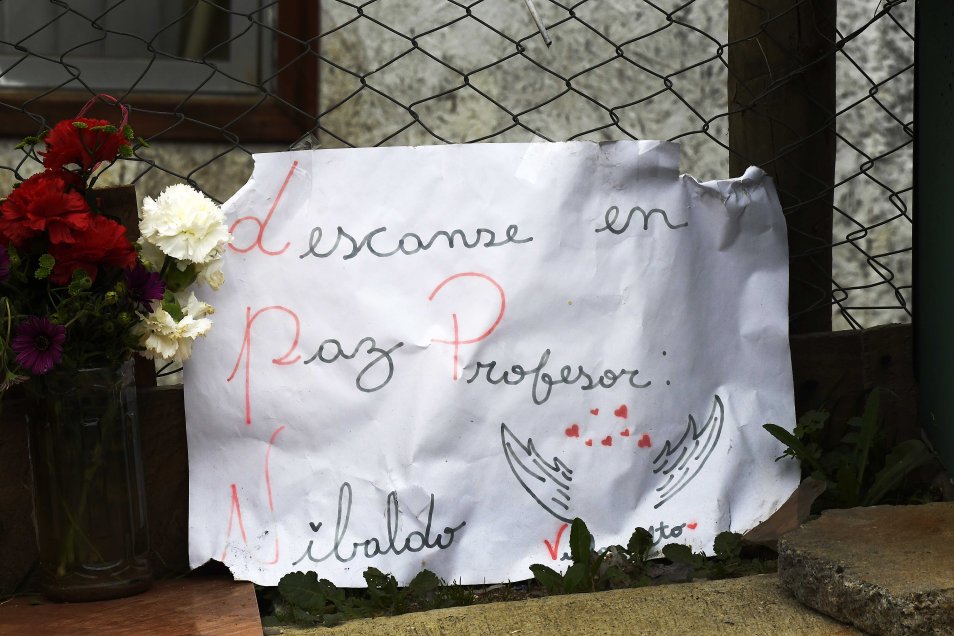 descanse en
paz Profesor:
Nibaldo